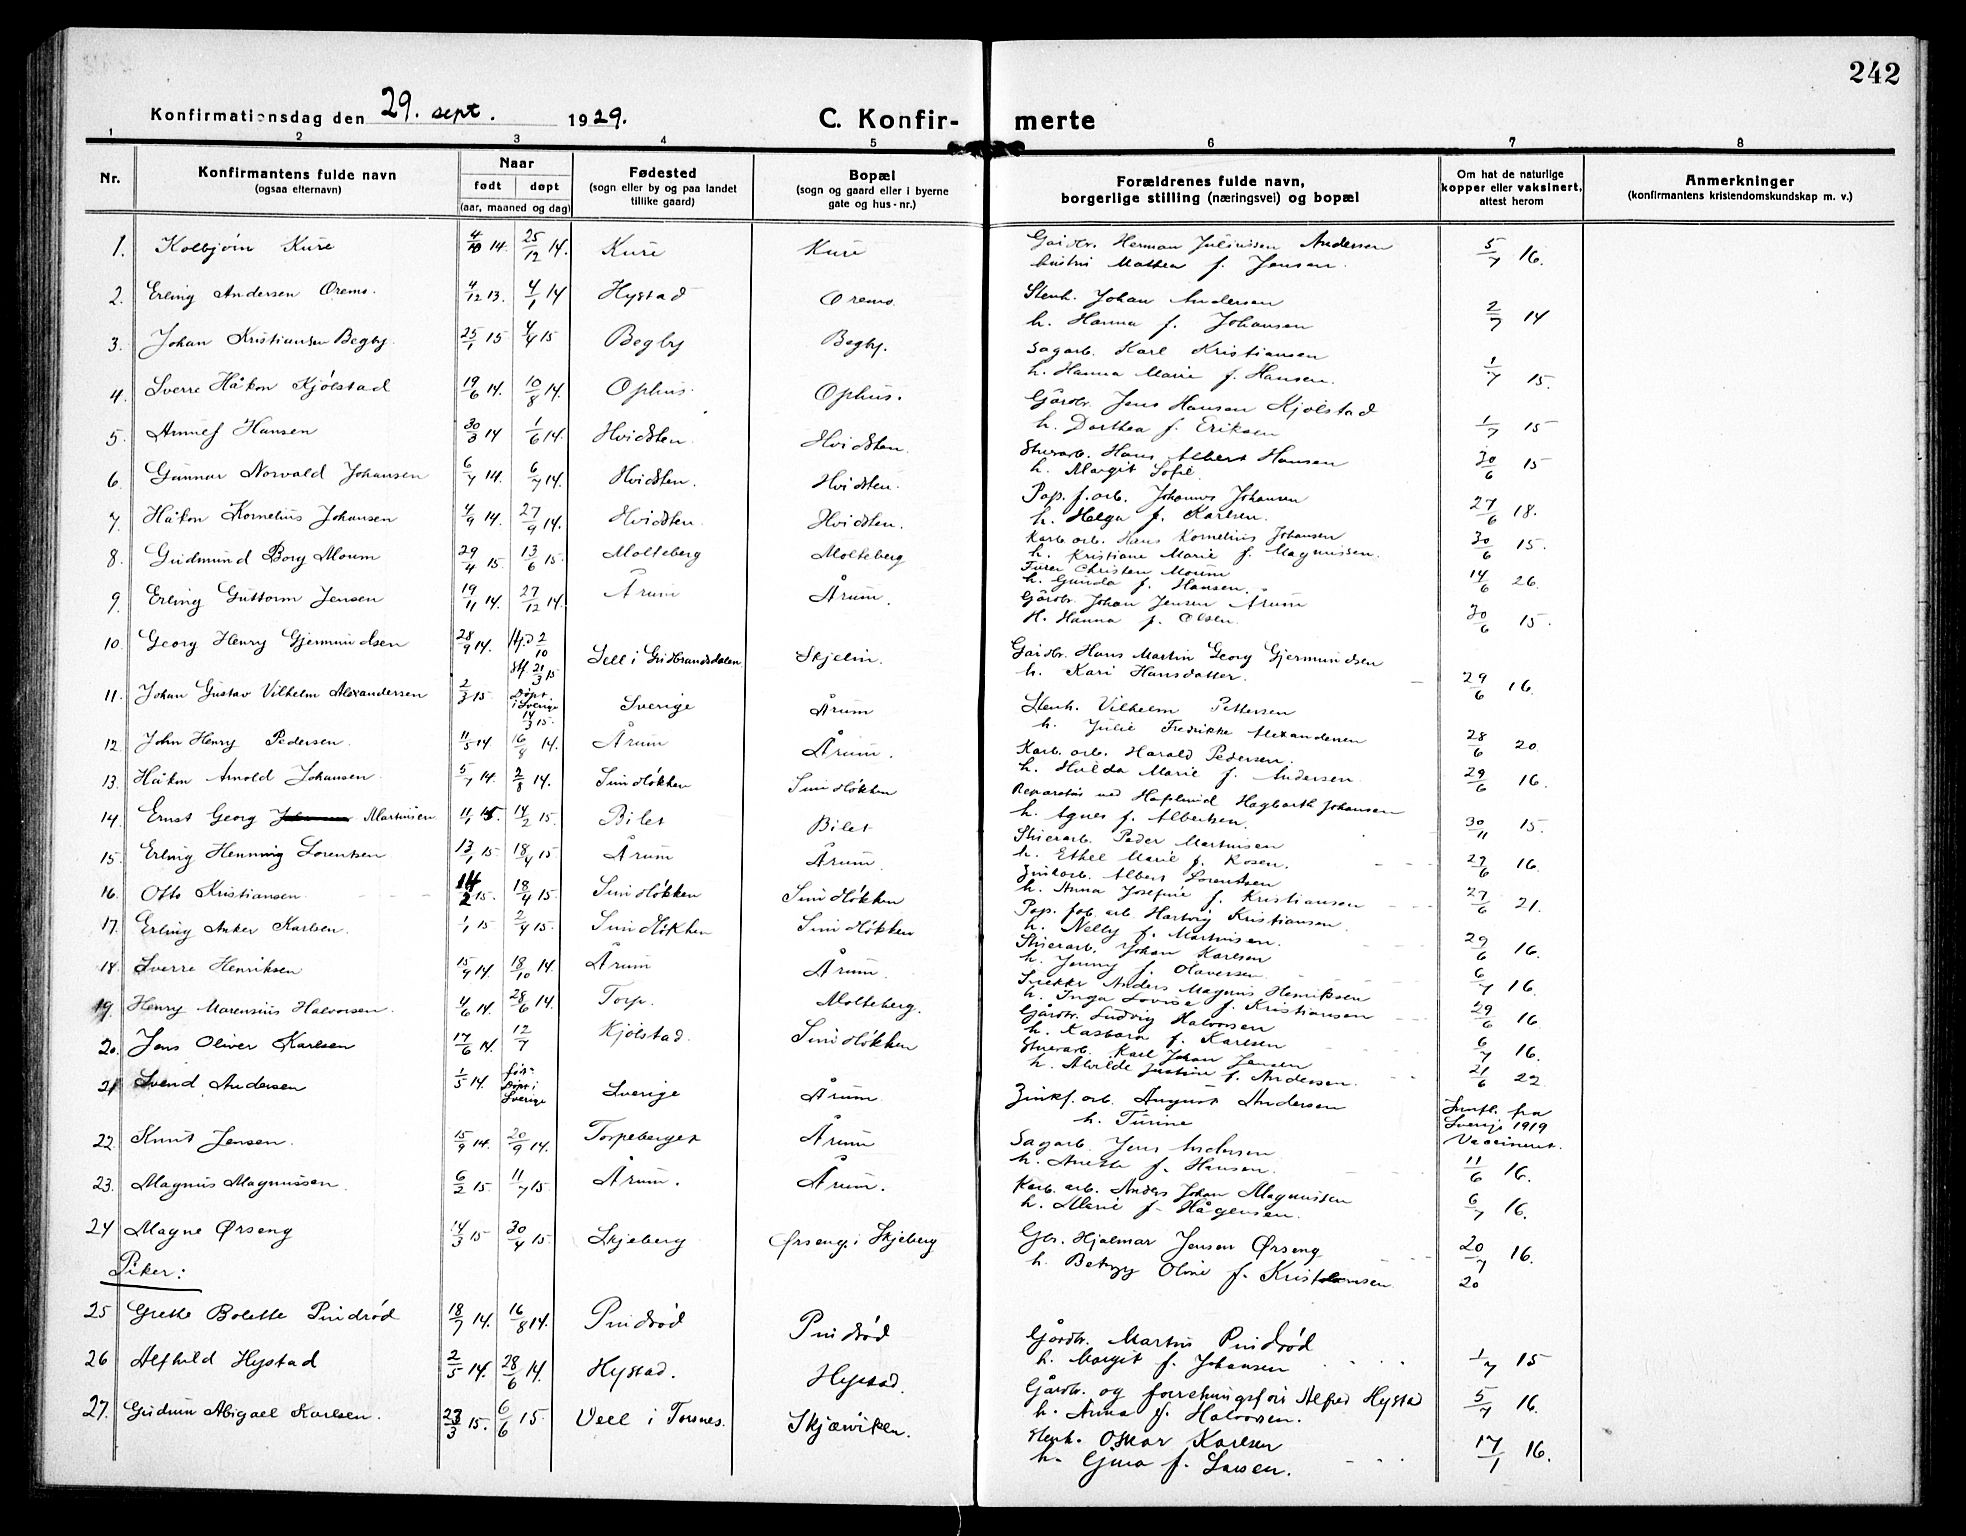 242
Konfirmationsdag den 29. sept. 1929. C. Konfir- merte
1 2 3 4 5 6 7 8
Nr. Konfirmantens fulde navn (ogsaa efternavn) Naar født døpt (aar, maaned og dag) Fødested (sogn eller by og paa landet tillike gaard) Bopæl (sogn og gaard eller i byerne gate og hus-nr.) Forældrenes fulde navn, borgerlige stilling (næringsvei) og bopæl Om hat de naturlige kopper eller vaksinert, attest herom Anmerkninger (konfirmantens kristendomskundskap m. v.)
1. Kolbjørn Kure 14. 25/12 14. Kure Kure Herman Juliussen Andersen
Mathea f. Jensen. 5/7 16.
2. Erling Andersen Oremo. 4/12 13. 4/1 14 Hystad Oremo Stenh. Johan Andersen
h. Hanna f. Johansen 2/7 14
3. Johan Kristiansen Begby. 25/1 15 4/4 15 Begby Begby. Sagarb. Karl Kristiansen
h. Hanna Marie f. Hansen. 1/7 15.
4. Sverre Håkon Kjölstad 19/6 14. 10/8 14. Ophus. Ophus. Gårdbr. Jens Hansen Kjölstad
h. Dorthea f. Eriksen 1/7 15
5. Hansen 30/3 14 1/6 14. Hvidsten. Hvidsten. Hans Albert Hansen
h. Margit Sofie 30/6 15
6. Gunnar Norvald Johansen 6/7 14. 6/7 14. Hvidsten. Hvidsten. Pap. f. arb. Johannes Johansen
h. Helga f. Karlsen. 27/6 18.
7. Håkon Kornelius Johansen 4/9 14. 27/9 14. Hvidsten. Hvidsten. Karb. arb. Hans Kornelius Johansen
h. Kristiane Marie f. Magnussen. 30/6 15.
8. Gudmund Borg Moum 29/4 15. 13/6 15. Molteberg Molteberg Christen Moum
h. Gunda f. Hansen. 14/6 26.
9. Erling Guttorm Jensen 19/11 14. 27/12 14. Årum Årum. Gårdbr. Johan Jensen Årum
H. Hanna f. Olsen. 30/6 15.
10. Georg Henry Gjermundsen 28/9 14. Hj.d 2/10 St. 21/3 15 Sell i Gudbrandsdalen Skjelin. Hans Martin Georg Gjermundsen
h. Kari Hansdatter. 29/6 16.
11. Johan Gustav Vilhelm Alexandersen 2/3 15. Døpt. i Sverige 14/3 15. Sverige Årum Stenh. Vilhelm Pettersen
h. Julie Fredrikke Alexandersen 28/6 20.
12. John Henry Pedersen. 11/5 14. 16/8 14. Årum Årum. Karb. arb. Harald Pedersen.
h. Hulda Marie f. Andersen. 29/6 16.
13. Håkon Arnold Johansen. 5/7 14. 2/8 14. Simdløkken Simdløkken Reparatør ved Hagbarth Johansen
h. Agnes f. Albertsen. 30/11 15.
14. Ernst Georg Martinsen 14/2 15. Bilet Bilet Peder Martinsen
h. Ethel Marie f. Rosen. 29/6 16.
15. Erling Henning Lorentsen 13/1 15. 18/4 15 Årum Årum. Zinkarb. Albert Lorentsen
h. Anna Josefine f. Kristiansen 27/6 21.
16. Otto Kristiansen. 14/2 15. 18/4 15. Simdløkken Simdløkken Pap. fab. arb. Hartvig Kristiansen
h. Nelly f. Martinsen. 29/6 16.
17. Erling Anker Karlsen. 1/1 15 2/4 15. Simdløkken Simdløkken Johan Karlsen
h. Jenny f. Olaversen 6/7 16.
18. Sverre Henriksen 15/9 14. 18/10 14. Årum Årum. Anders Magnus Henriksen
h. Inga Lovise f. Kristiansen 29/6 16
19. Henry Marensius Halvorsen. 4/6 14. 28/6 14. Torp. Molteberg. Gårdbr. Ludvig Halvorsen
h. Kasbara f. Karlsen 6/7 16.
20. Jens Oliver Karlsen 17/6 14. 12/7 Kjölstad. Simdløkken Karl Johan Jensen
h. Alvilde Justine f. Andersen. 21/6 22.
21 Svend Andersen 1/5 14. Døpt i Sverige Sverige Årum. Zinkf. arb. August Andersen
h. Turine Innfl. fra Sverige 1919 Vaccineret.
22. Knut Jensen. 15/9 14. 20/9 14. Torpeberget Årum Sagarb. Jens Andersen
h. f. Hansen. 11/6 16.
23. Magnus Magnussen. 6/2 15. 11/7 15. Årum. Årum. Karb. arb. Anders Johan Magnussen
h. Marie f. Hågensen. 6/7 16.
24 Magne Ørseng 14/3 15 30/4 15. Skjeberg Ørseng i Skjeberg Gbr. Hjalmar Jensen Ørseng
h. Betzy Oline f. Kristiansen 20/7 16.
20
Piker:
25 Grethe Bolette Pindrød 18/7 14. 16/8 14. Pindrød Pindrød Gårdbr. Martin Pindrød
h. Margit f. Johansen 1/7 15
26 Alfhild Hystad 2/5 14. 28/6 14. Hystad. Hystad. Gårdbr. og forretningsför. Alfred Hystad
h. Anna f. Halvorsen. 5/7 16.
27. Gudrun Abigael Karlsen. 23/3 15. 6/6 15. Vell i Torsnes. Skjærviken. Stenh. Oskar Karlsen
h. Gina f. Larsen. 17/1 16.